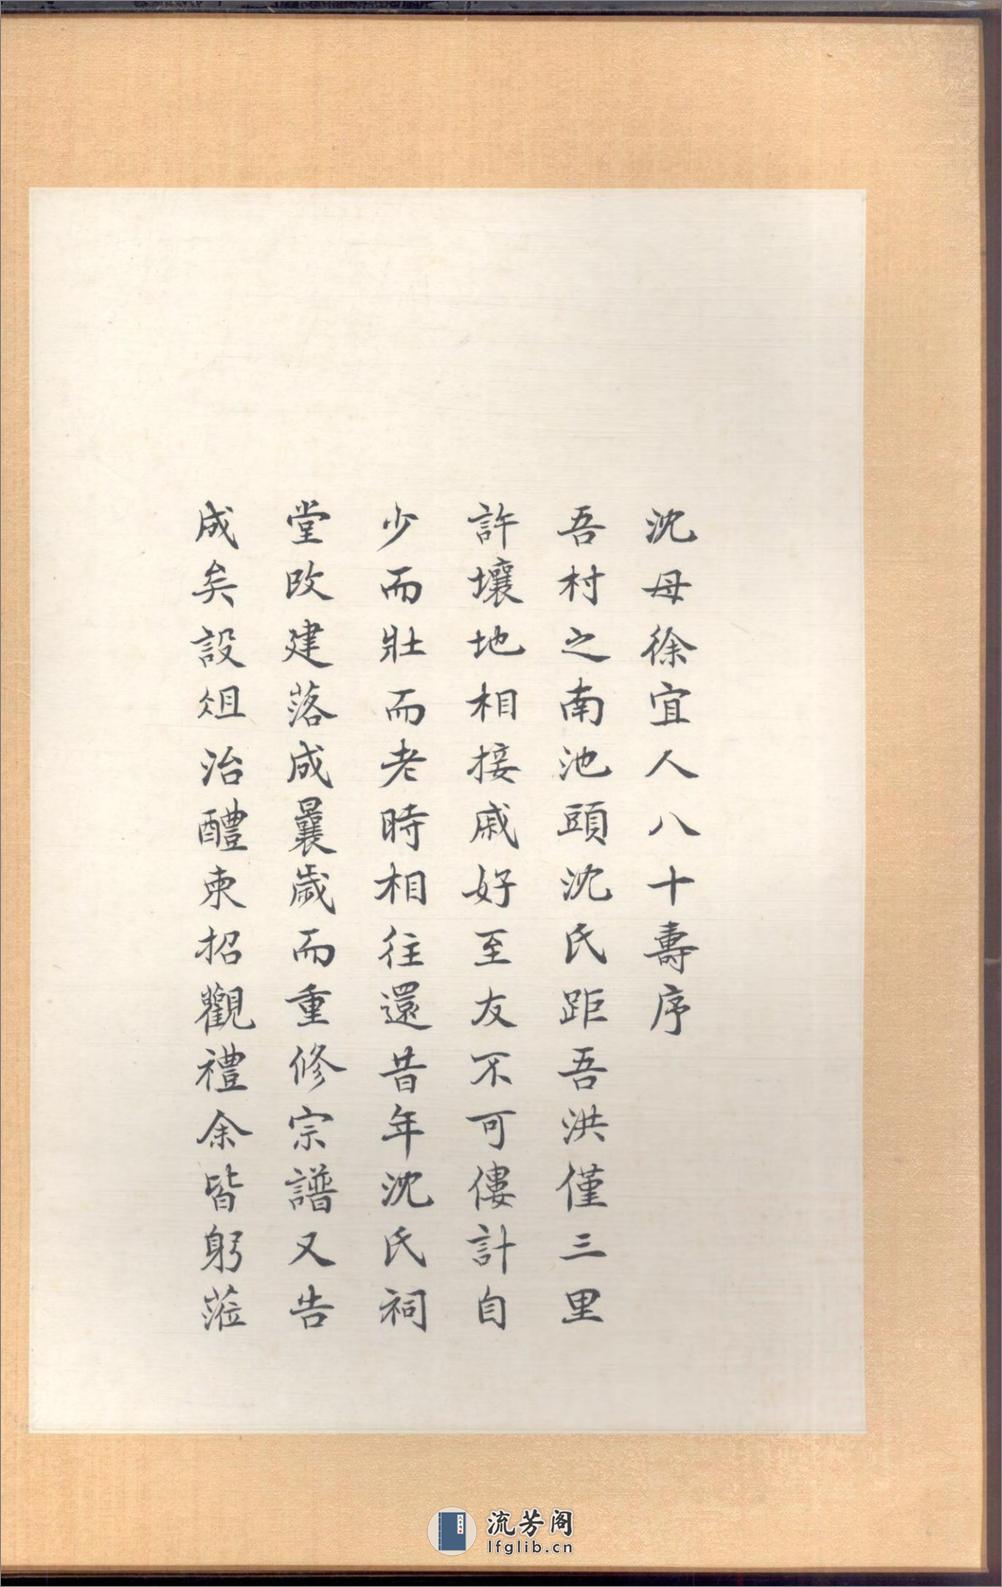 沈母徐宜人八十壽序
吾村之南池頭沈氏距吾洪僅三里
許壤地相接戚好至友不可僂計自
少而壯而老時相往還昔年沈氏祠
堂改建落成曩歲而重修宗譜又告
成矣設俎治醴柬招觀禮余皆躬蒞
流芳阁
lfglib.cn